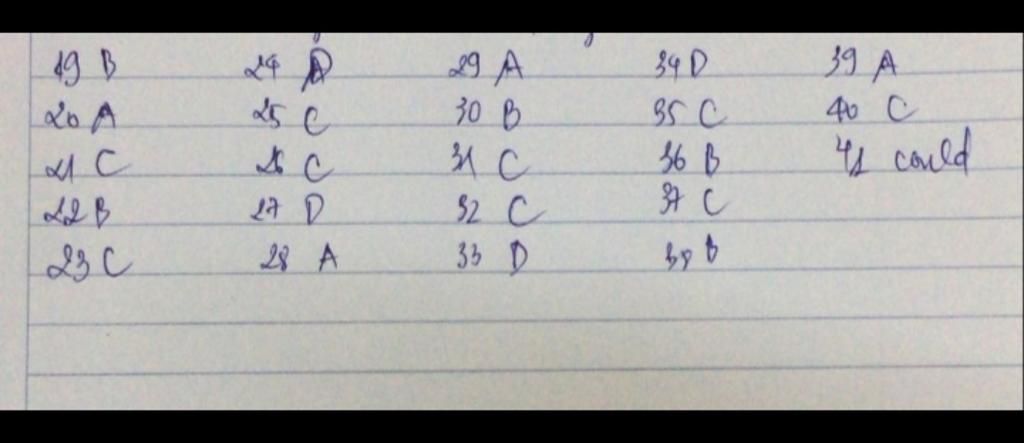 19 B 24 D 29 A 34 D 39 A
20 A 25 C 30 B 35 C 40 C
21 C 26 C 31 C 36 B 41 could
22 B 27 D 32 C 37 C
23 C 28 A 33 D 38 B